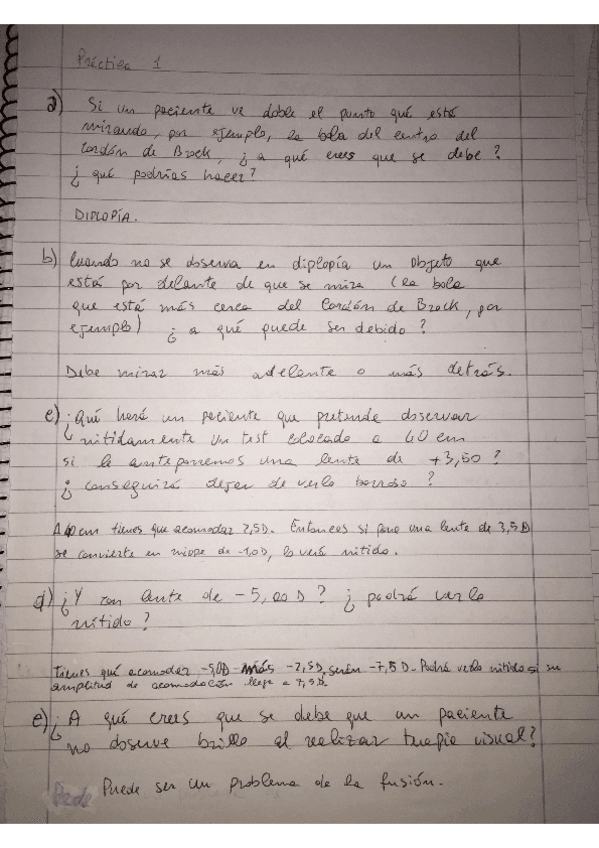 Práctica 1
a) Si un paciente ve doble el punto qué está
mirando, por ejemplo, la bola del centro del
Cordón de Brock, ¿a qué crees que se debe?
¿qué podrías hacer?
DIPLOPÍA.
b) Cuando no se observa en diplopía un objeto que
está por delante de que se mira (la bola
que está más cerca del Cordón de Brock, por
ejemplo) ¿a qué puede ser debido?
Debe mirar más adelante o más detrás.
c) ¿Qué hará un paciente que pretende observar
nítidamente un test colocado a 40 cm
si le anteponemos una lente de +3,50?
¿conseguirá dejar de verlo borroso?
A 40 cm tienes que acomodar 2,5D. Entonces si pone una lente de 3,5 D
se convierte en miope de -1,0D, lo verá nítido.
d) ¿Y con lente de -5,00 D? ¿podrá verlo
nítido?
Tienes qué acomodar -5,0D más -2,5D, serán -7,5 D. Podrá verlo nítido si su
amplitud de acomodación llega a 7,5D.
e) ¿A qué crees que se debe que un paciente
no observe brillo al realizar terapia visual?
Puede ser un problema de la fusión.